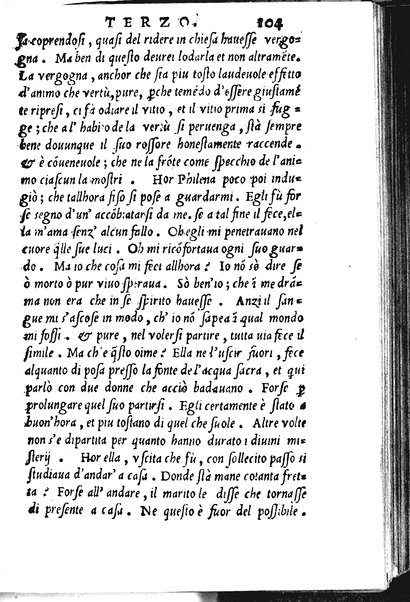 TERZO. 104
sa coprendosi, quasi del ridere in chiesa hauesse vergo-
gna. Ma ben di questo deurei lodarla et non altramẽte.
La vergogna, anchor che sia piu tosto laudeuole effetto
d'animo che vertù, pure, ꝑche temẽdo d'essere giustamẽ
te ripresi, ci fà odiare il vitio, et il vitio prima si fug-
ge; che al' habito de la vertù si peruenga, stà sempre
bene douunque il suo rossore honestamente raccende.
& è cõueneuole; che ne la frõte come specchio de l'ani
mo ciascun la mostri. Hor Philena poco poi indu-
giò; che tallhora fiso si pose a guardarmi. Egli fù for
se segno d'un' accõbatarsi da me. se a tal fine il fece, el-
la m'ama senz' alcun fallo. Ob egli mi penetrauano nel
cuore q̃lle sue luci. Ob mi ricõfortaua ogni suo guar-
do. Ma io che cosa mi feci allhora? Io nõ sò dire se
ò morto ò pur viuo spiraua. Sò ben'io; che ĩ me drã-
ma non era che in se spirito hauesse. Anzi il san-
gue mi s'ascose in modo, ch' io nõ sapea ĩ qual mondo
mi fossi. & pure, nel volersi partire, tutta uia fece il
simile. Ma ch'e q̃sto oime? Ella ne l'uscir fuori, fece
alquanto di posa presso la fonte de l'acqua sacra, et qui
parlò con due donne che acciò badauano. Forse ꝑ
prolungare quel suo partirsi. Egli certamente è stato a
buon'hora, et piu tostano di quel che suole. Altre volte
non s'e dipartita per quanto hanno durato i diuini mi-
sterij. Hor ella, vscita che fù, con sollecito passo si
studiaua d'andar' a casa. Donde stà mane cotanta fret-
ta? Forse all' andare, il marito le disse che tornasse
di presente a casa. Ne questo è fuor del possibile.